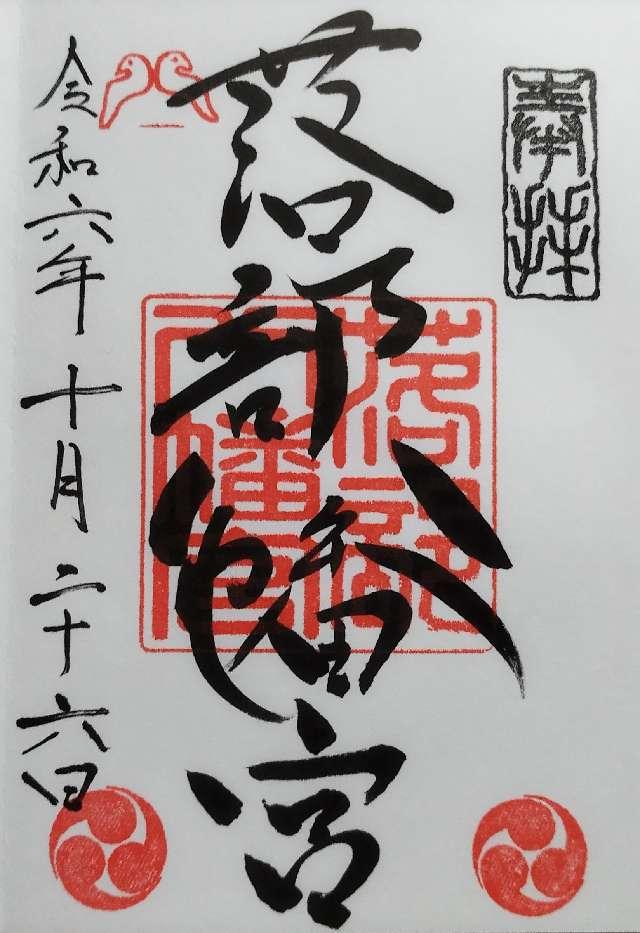 奉拝
落部八幡宮
落部八幡宮
令和六年十月二十六日